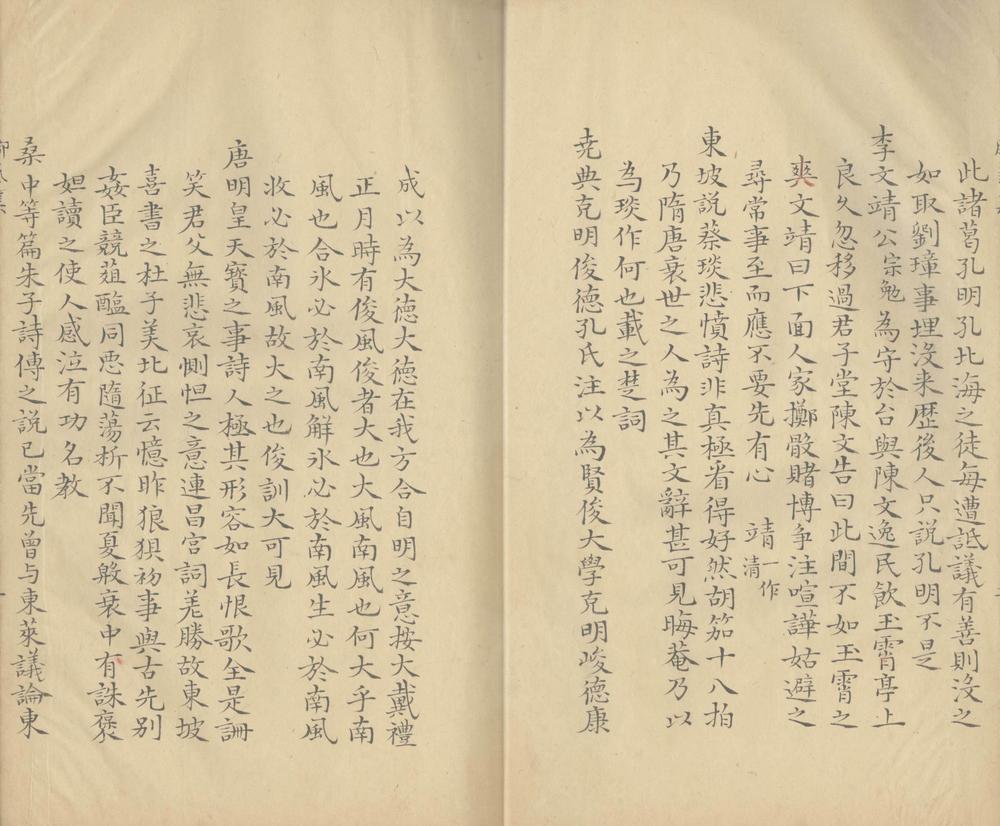 此諸葛孔明孔北海之徒每遭詆議有善則沒之
如取劉璋事埋沒来歴後人只說孔明不是
李文靖公宗勉為守於台與陳文逸民飲玉霄亭上
良久忽移過君子堂陳文告曰此間不如玉霄之
爽文靖曰下面人家擲骰賭博争注喧譁姑避之
尋常事至而應不要先有心 靖一作清
東坡說蔡琰悲憤詩非真極看得好然胡笳十八拍
乃隋唐衰世之人為之其文辭甚可見晦菴乃以
為琰作何也載之楚詞
尭典克明俊德孔氏注以為賢俊大學克明峻德康
成以為大德大德在我方合自明之意按大戴禮
正月時有俊風俊者大也大風南風也何大乎南
風也合氷必於南風解氷必於南風生必於南風
收必於南風故大之也俊訓大可見
唐明皇天寶之事詩人極其形容如長恨歌全是訕
笑君父無悲哀惻怛之意連昌宮詞羌勝故東坡
喜書之杜子美北征云憶昨狼狽初事與古先别
姦臣競葅醢同惡隨蕩析不聞夏殷衰中有誅褒
妲讀之使人感泣有功名教
桑中等篇朱子詩傳之說已當先曾与東萊議論東